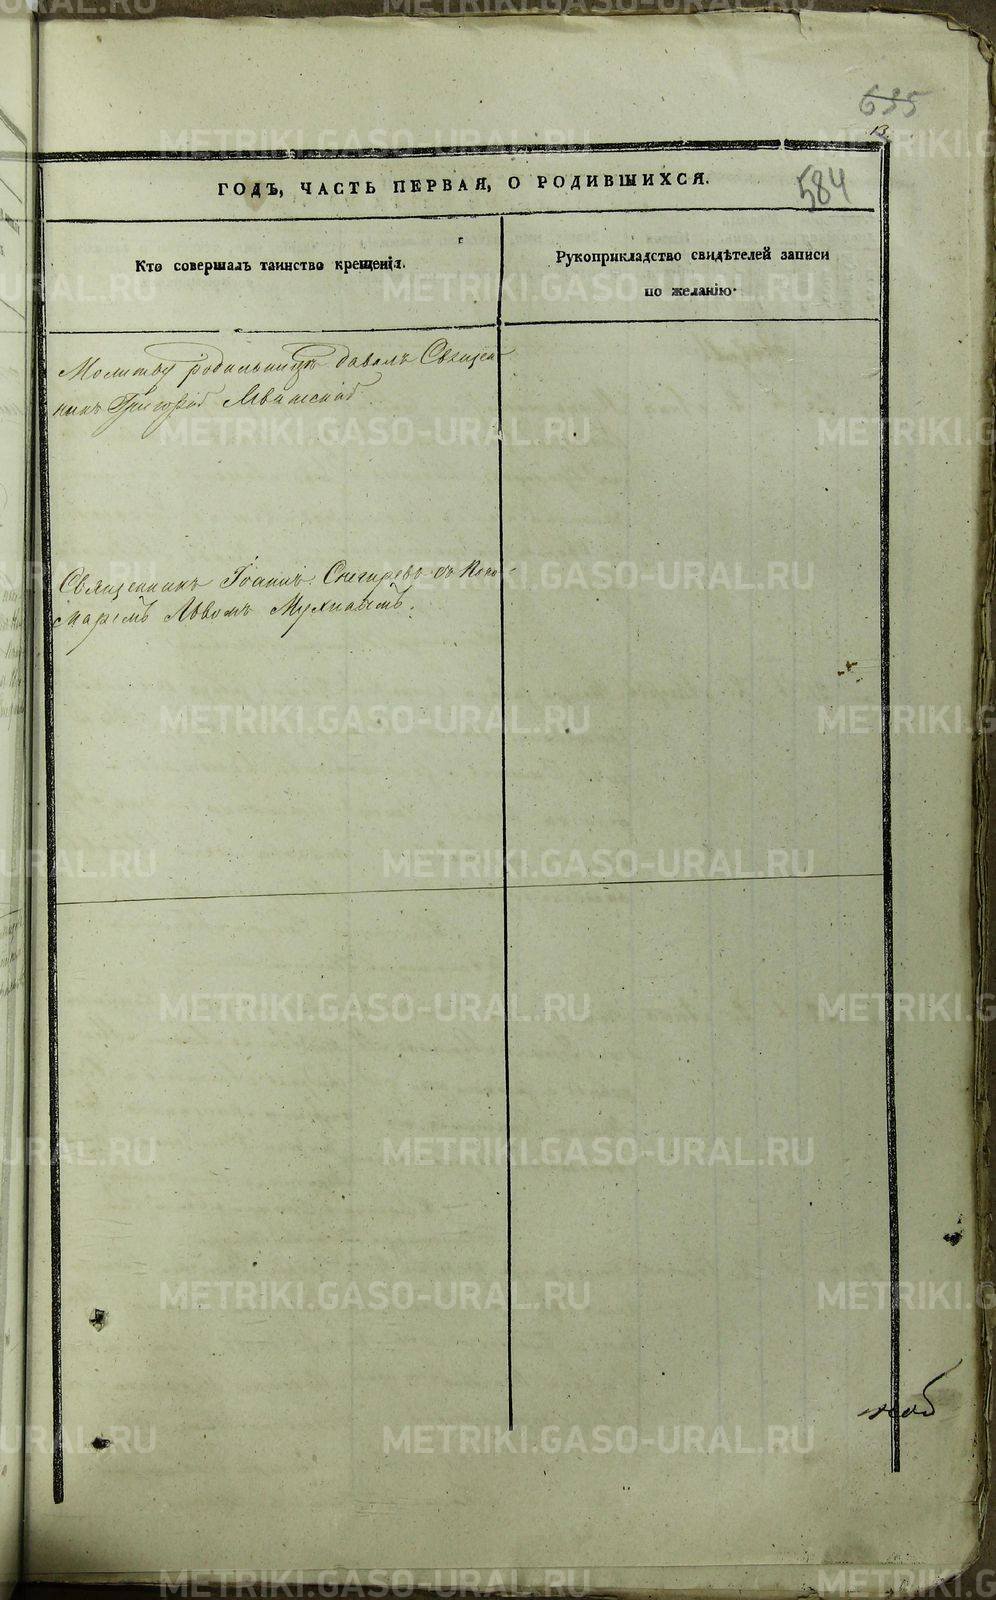 635
13
ГОДЪ, ЧАСТЬ ПЕРВАЯ, О РОДИВШИХСЯ.
584
Кто совершалъ таинство крещенія.
Рукоприкладство свидѣтелей записи
по желанію.
Молитву родильницѣ давалъ Священ
никъ Григорій
Священникъ Іоаннъ Снегиревъ съ Поно-
маремъ Львомъ Мухинымъ.
METRIKI.GASO-URAL.RU